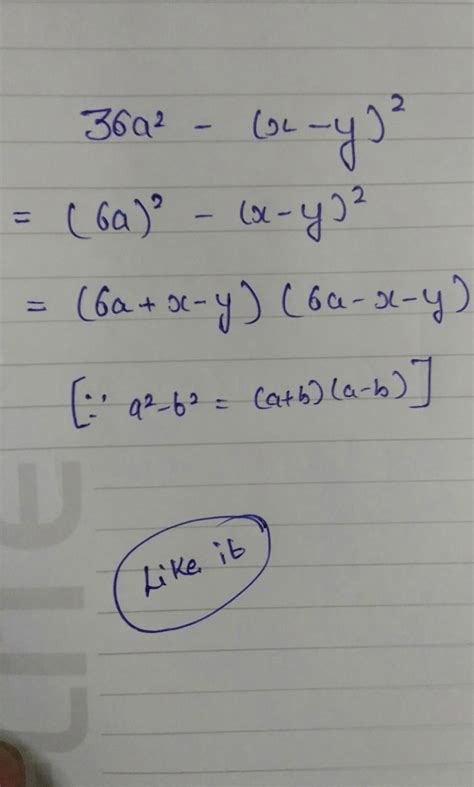 36a² - (x-y)²
= (6a)² - (x-y)²
= (6a+x-y) (6a-x-y)
[∵ a²-b² = (a+b)(a-b)]
Like it